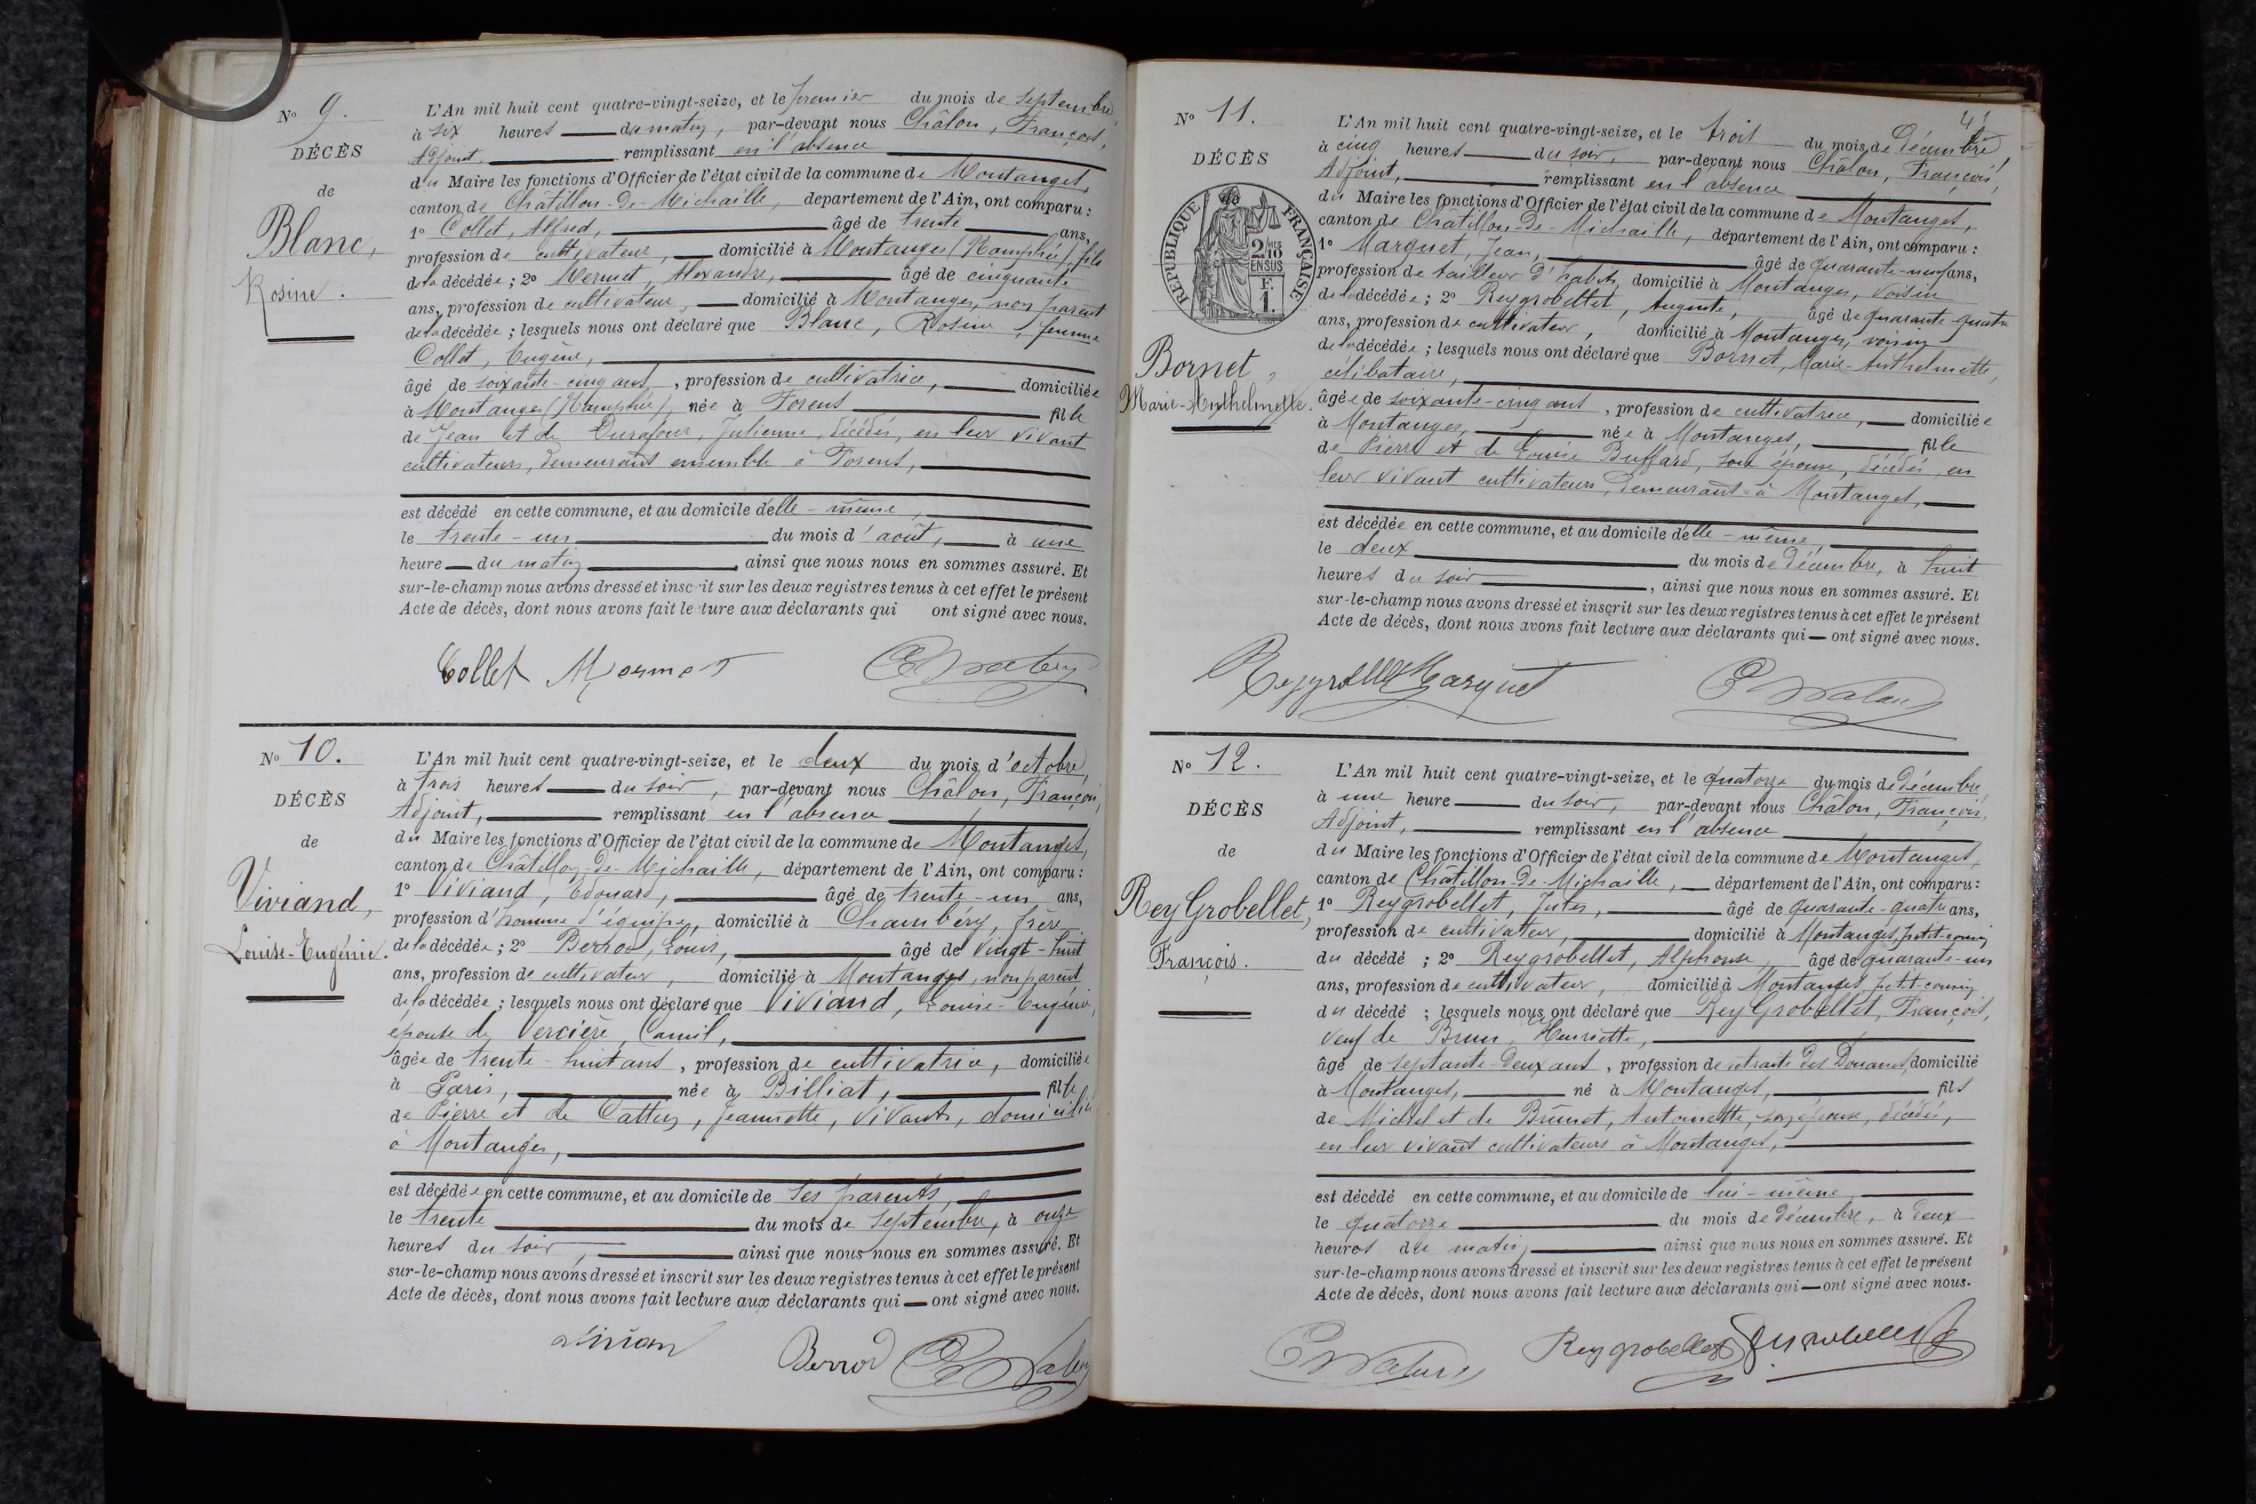 No 9.
DÉCÈS
de
Blanc,
Rosine.
L'An mil huit cent quatre-vingt-seize, et le premier du mois de septembre,
à six heures du matin, par-devant nous Châlon, François,
Adjoint, remplissant en l'absence
du Maire les fonctions d'Officier de l'état civil de la commune de Montanges,
canton de Châtillon-de-Michaille, département de l'Ain, ont comparu :
1o Collet, Alfred, âgé de trente ans,
profession de cultivateur, domicilié à Montanges (Ramphée), fils
de la décédée ; 2o Mermet, Alexandre, âgé de cinquante
ans, profession de cultivateur, domicilié à Montanges, non parent
de la décédée ; lesquels nous ont déclaré que Blanc, Rosine, femme
Collet, Eugène,
âgé de soixante-cinq ans, profession de cultivatrice, domiciliée
à Montanges, née à Forens fille
de Jean et de Durafour, Julienne, décédés, en leur vivant
cultivateurs, demeurant ensemble à Forens,
est décédé en cette commune, et au domicile d'elle-même,
le trente-un du mois d'août, à une
heure du matin, ainsi que nous nous en sommes assuré. Et
sur-le-champ nous avons dressé et inscrit sur les deux registres tenus à cet effet le présent
Acte de décès, dont nous avons fait lecture aux déclarants qui ont signé avec nous.
Collet Mermet
No 10.
DÉCÈS
de
Viviand,
Louise-Eugénie.
L'An mil huit cent quatre-vingt-seize, et le deux du mois d'octobre,
à trois heures du soir, par-devant nous Châlon, François,
Adjoint, remplissant en l'absence
du Maire les fonctions d'Officier de l'état civil de la commune de Montanges,
canton de Châtillon-de-Michaille, département de l'Ain, ont comparu :
1o Viviand, Edouard, âgé de trente-un ans,
profession d'homme d'équipe, domicilié à Chambéry, frère
de la décédée ; 2o Berrod, Louis, âgé de vingt-huit
ans, profession de cultivateur, domicilié à Montanges, non parent
de la décédée ; lesquels nous ont déclaré que Viviand, Louise-Eugénie,
épouse de Vercière, Camil,
âgée de trente-huit ans, profession de cultivatrice, domiciliée
à Paris, née à Billiat, fille
de Pierre et de Cattin, Jeannette, vivants, domiciliés
à Montanges,
est décédée en cette commune, et au domicile de ses parents,
le trente du mois de septembre, à onze
heures du soir, ainsi que nous nous en sommes assuré. Et
sur-le-champ nous avons dressé et inscrit sur les deux registres tenus à cet effet le présent
Acte de décès, dont nous avons fait lecture aux déclarants qui ont signé avec nous.
Berrod
No 11.
DÉCÈS
RÉPUBLIQUE FRANÇAISE
2/10
EN SUS
F.
1.
Bornet,
Marie-Anthelmette.
L'An mil huit cent quatre-vingt-seize, et le trois du mois de Décembre,
à cinq heures du soir, par-devant nous Châlon, François,
Adjoint, remplissant en l'absence
du Maire les fonctions d'Officier de l'état civil de la commune de Montanges,
canton de Châtillon-de-Michaille, département de l'Ain, ont comparu :
1o Marquet, Jean, âgé de quarante-neuf ans,
profession de tailleur d'habits, domicilié à Montanges, voisin
de la décédée ; 2o Reygrobellet, Auguste, âgé de quarante-quatre
ans, profession de cultivateur, domicilié à Montanges, voisin
de la décédée ; lesquels nous ont déclaré que Bornet, Marie-Anthelmette,
célibataire,
âgée de soixante-cinq ans, profession de cultivatrice, domiciliée
à Montanges, née à Montanges, fille
de Pierre et de Louise Buffard, son épouse, décédés, en
leur vivant cultivateurs, demeurant à Montanges,
est décédée en cette commune, et au domicile d'elle-même,
le deux du mois de décembre, à huit
heures du soir, ainsi que nous nous en sommes assuré. Et
sur-le-champ nous avons dressé et inscrit sur les deux registres tenus à cet effet le présent
Acte de décès, dont nous avons fait lecture aux déclarants qui ont signé avec nous.
Marquet
No 12.
DÉCÈS
de
ReyGrobellet,
François.
L'An mil huit cent quatre-vingt-seize, et le quatorze du mois de Décembre,
à une heure du soir, par-devant nous Châlon, François,
Adjoint, remplissant en l'absence
du Maire les fonctions d'Officier de l'état civil de la commune de Montanges,
canton de Châtillon-de-Michaille, département de l'Ain, ont comparu :
1o Reygrobellet, Jules, âgé de quarante-quatre ans,
profession de cultivateur, domicilié à Montanges, petit-cousin
du décédé ; 2o Reygrobellet, Alphonse, âgé de quarante-un
ans, profession de cultivateur, domicilié à Montanges, petit cousin
du décédé ; lesquels nous ont déclaré que ReyGrobellet, François,
veuf de Brun, Henriette,
âgé de septante-deux ans, profession de retraité des Douanes, domicilié
à Montanges, né à Montanges, fils
de Michel et de Brunet, Antoinette, son épouse, décédés,
en leur vivant cultivateurs à Montanges,
est décédé en cette commune, et au domicile de lui-même
le quatorze du mois de décembre, à deux
heures du matin, ainsi que nous nous en sommes assuré. Et
sur-le-champ nous avons dressé et inscrit sur les deux registres tenus à cet effet le présent
Acte de décès, dont nous avons fait lecture aux déclarants qui ont signé avec nous.
Reygrobellet